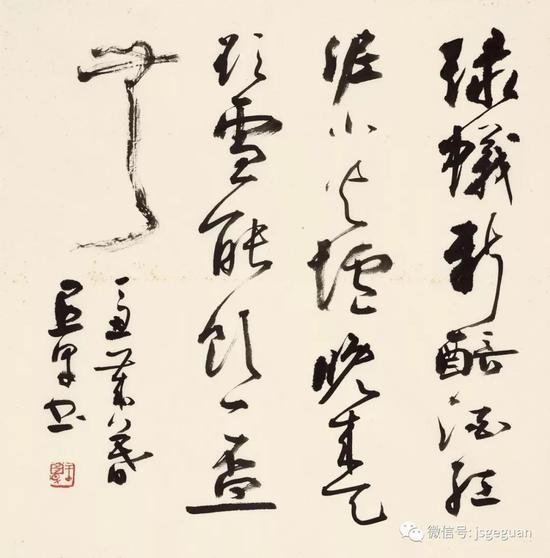 緑蟻新醅酒紅
泥小火爐晚来天
欲雪能飲一盃
无
书
微信号: jsgeguan